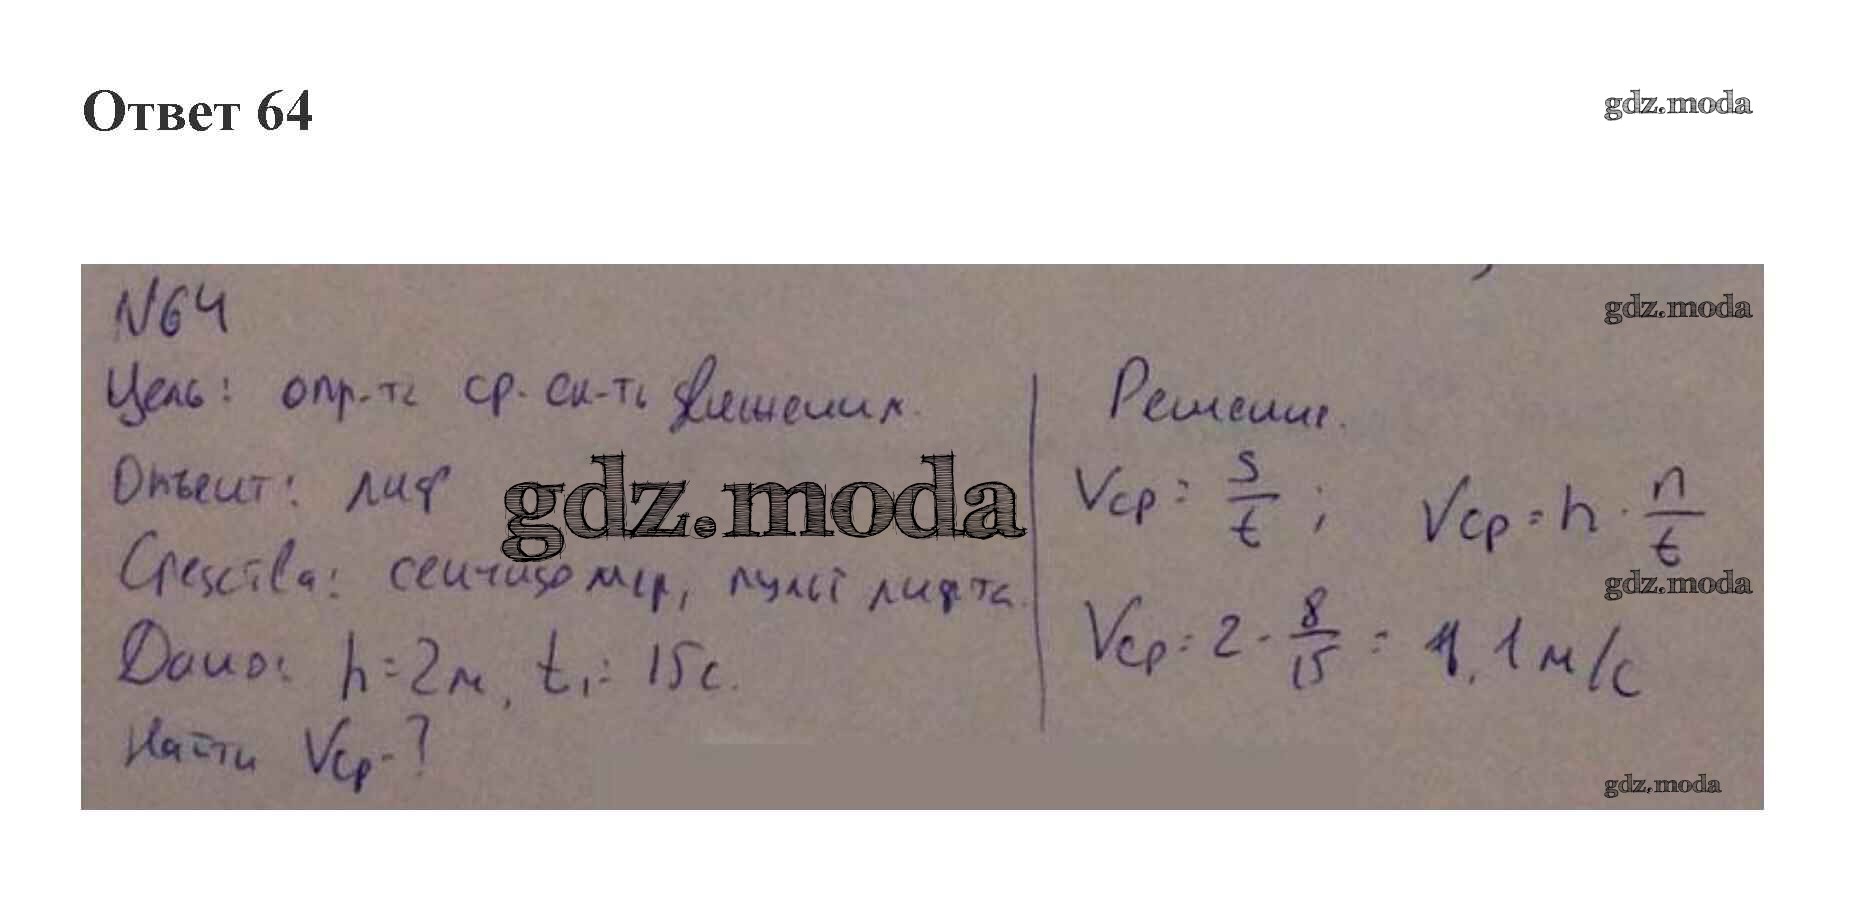 Ответ 64
gdz.moda
N64
gdz.moda
Цель: опр-ть ср. ск-ть движения.
Объект: лиф
gdz.moda
Средства: секундомер, пульт лифта.
Дано: h = 2м, t₁ = 15с.
Найти Vср - ?
Решение.
Vср = s/t ; Vср = h · n/t
gdz.moda
Vср = 2 · 8/15 = 1,1 м/с
gdz.moda